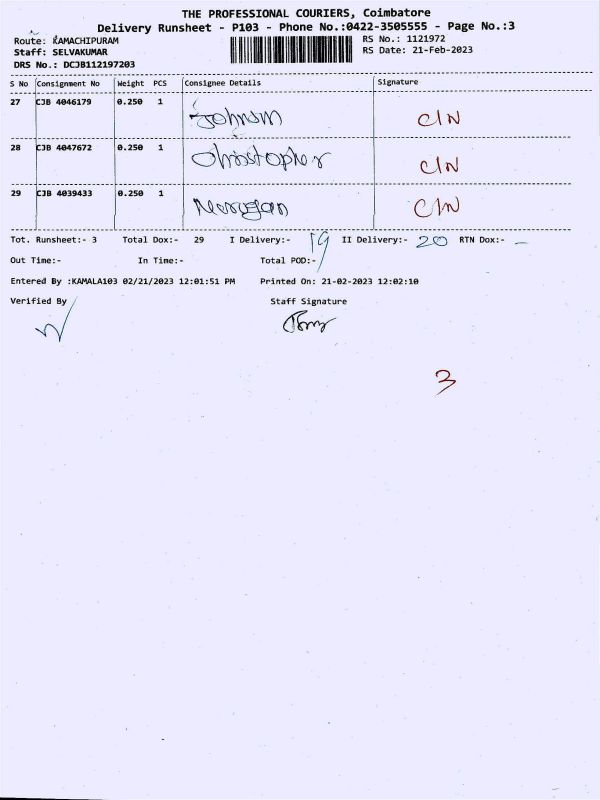 THE PROFESSIONAL COURIERS, Coimbatore
Delivery Runsheet - P103 - Phone No.:0422-3505555 - Page No.:3
Route: KAMACHIPURAM RS No.: 1121972
Staff: SELVAKUMAR RS Date: 21-Feb-2023
DRS No.: DCJB112197203
S No Consignment No Weight PCS Consignee Details Signature
27 CJB 4046179 0.250 1 Johnson C/N
28 CJB 4047672 0.250 1 Christopher C/N
29 CJB 4039433 0.250 1 Murugan C/N
Tot. Runsheet:- 3 Total Dox:- 29 I Delivery:- 19 II Delivery:- 20 RTN Dox:- -
Out Time:- In Time:- Total POD:-
Entered By :KAMALA103 02/21/2023 12:01:51 PM Printed On: 21-02-2023 12:02:10
Verified By Staff Signature
3